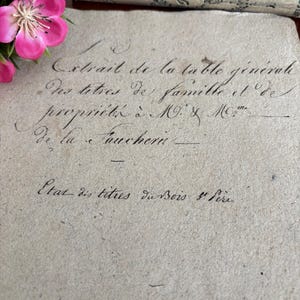 Extrait de la table générale
Des titres de famille et de
propriété à Mr. & Mme.
de la Faucherie
Etat des titres du Bois St Père